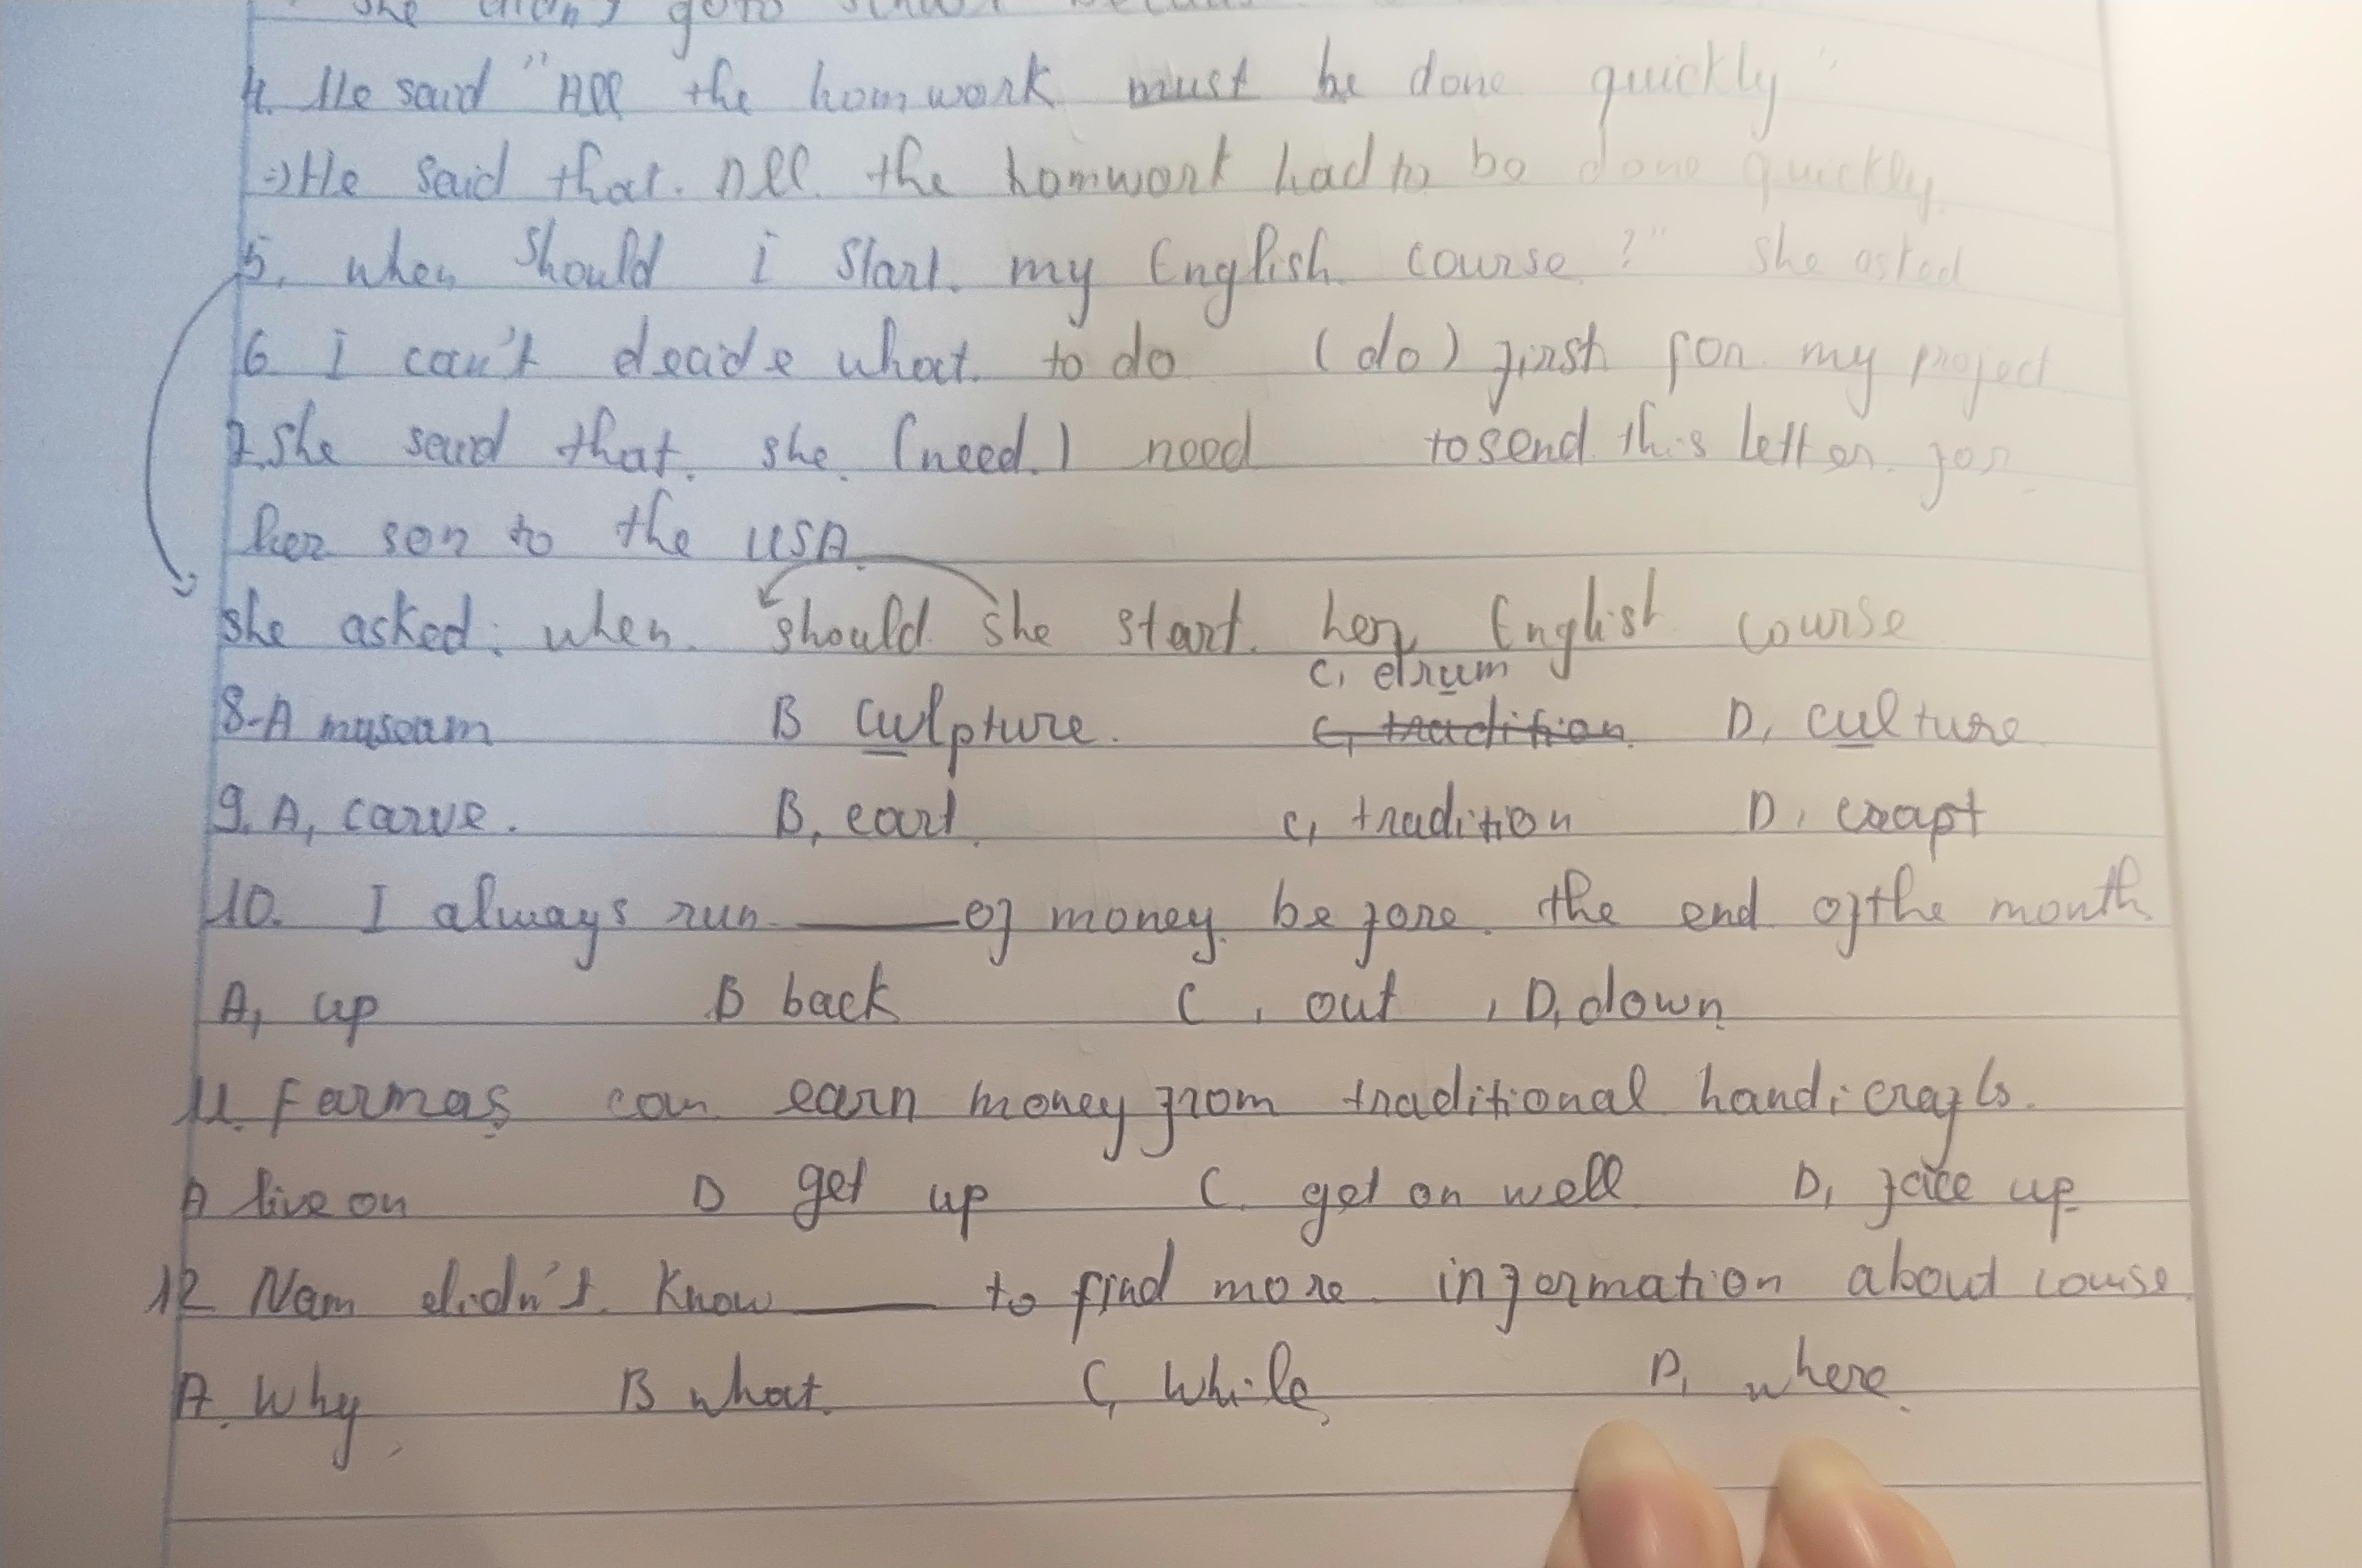 she didn't go to
4. He said "All the homwork must be done quickly"
=> He said that. All. the homwork had to be done quickly.
5. when should i start. my English course?" she asked
6 I can't decide what. to do (do) first for my project
7. she said that. she. (need.) need to send this letter for
her son to the USA
she asked. when. should she start. her English course
C, drum
8-A museam B culpture. C, tradition D, culture
9. A, carve. B, eart C, tradition D, craft
10. I always run ____ of money before. the end of the month
A, up B back C, out, D, down
11. Farmas can earn money from traditional handicrafts.
A live on D get up C. get on well D, face up
12 Nam didn't know ____ to find more information about course
A. Why, B what. C, While, D, where.